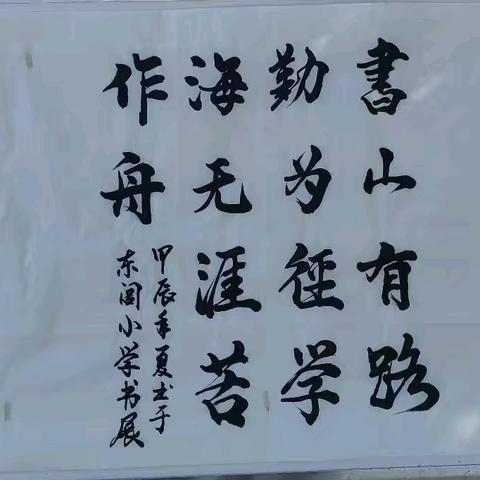 書山有路
勤为徑学
海无涯苦
作舟
甲辰年夏书于
东闾小学书展